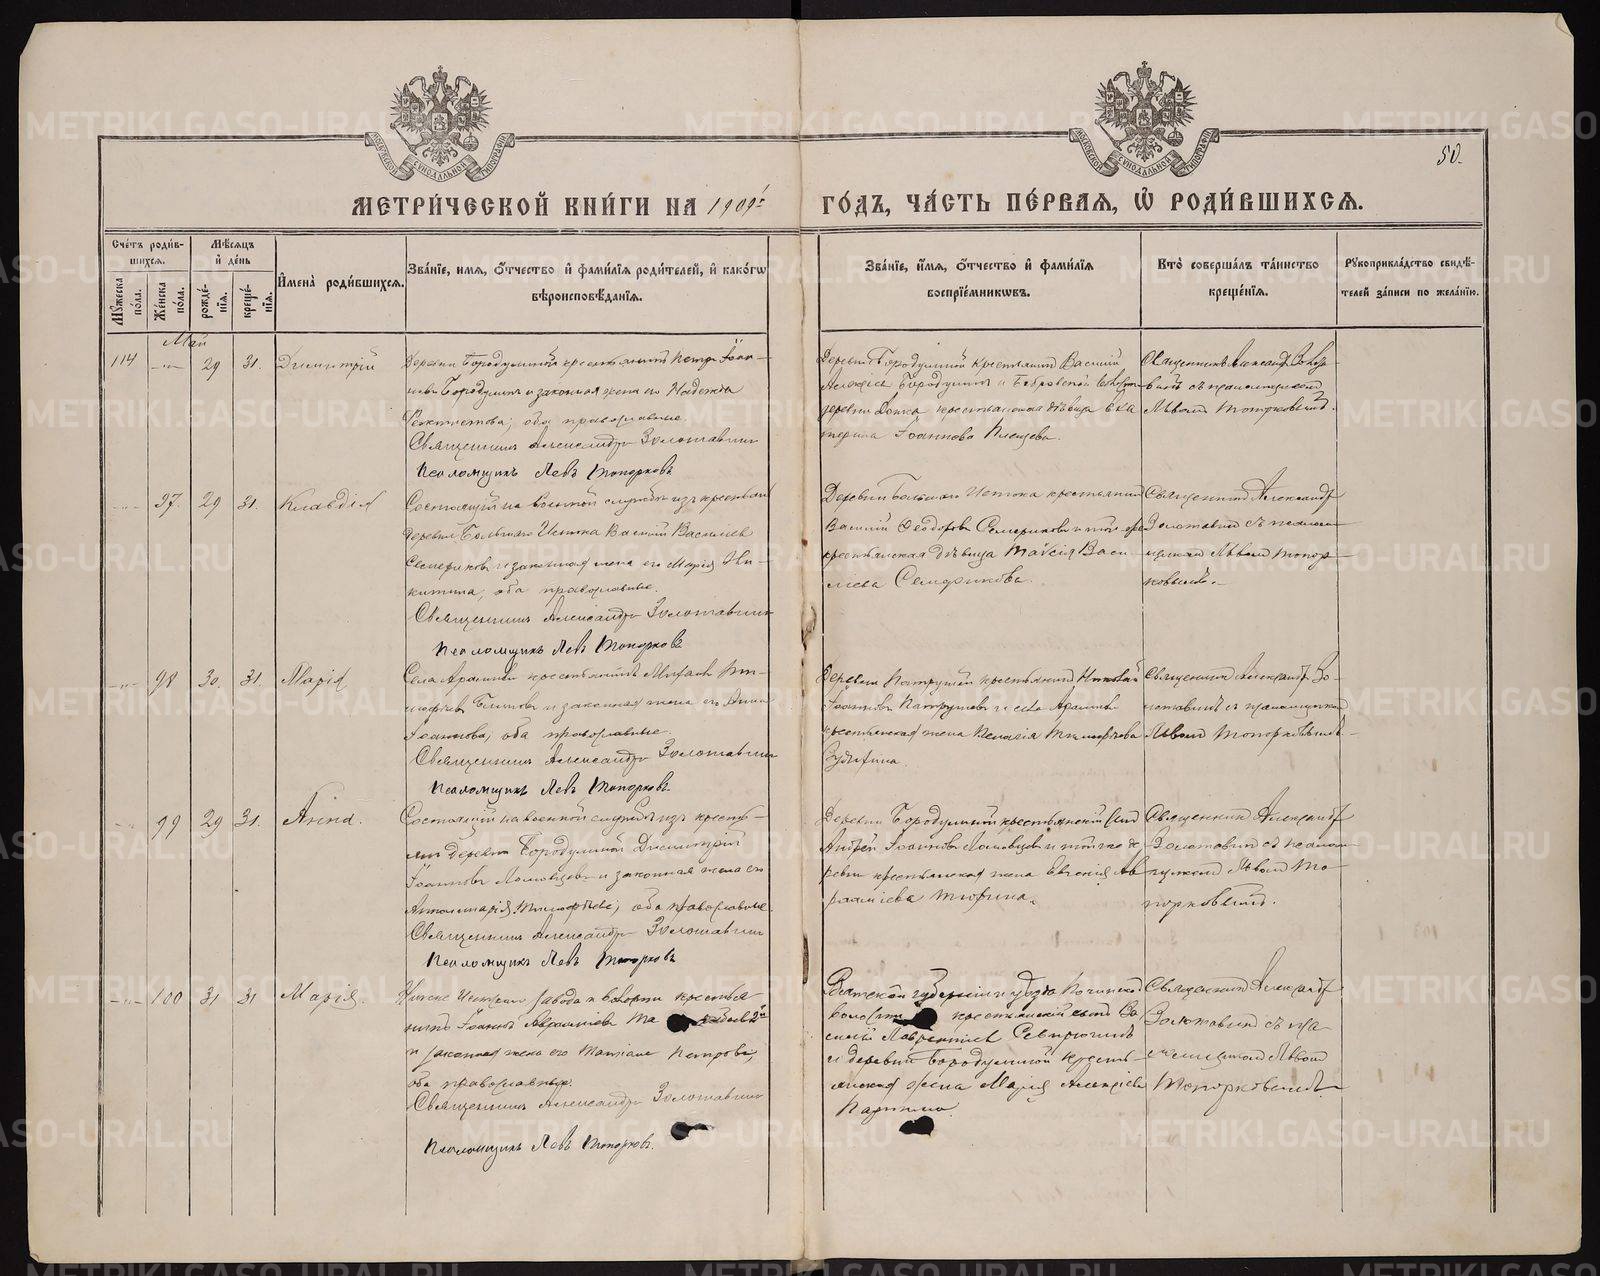 МЕТРИ́ЧЕСКОЙ КНИ́ГИ НА 1909й ГО́ДЪ, ЧА́СТЬ ПЕ́РВАЯ, Ѡ РОДИ́ВШИХСЯ.
50.
Сче́тъ роди́в-
шихся.
Му́жеска по́ла.
Же́нска по́ла.
Мѣ́сяцъ и де́нь
рожде́-
нія.
креще́-
нія.
Имена̀ роди́вшихся.
Зва́ніе, имя, о́тчество и фами́лія роди́телей, и како́гѡ
вѣроисповѣ́данія.
Зва́ніе, и́мя, о́тчество и фами́лія
воспріе́мниковъ.
Кто̀ соверша́лъ та́инство
креще́нія.
Рꙋкоприкла́дство свидѣ́-
телей за́писи по жела́нію.
Май
114 29 31. Димитрій
Деревни Бородулиной крестьянинъ Петръ Іоан-
новъ Бородулинъ и законная жена его Надежда
оба православные.
Священникъ Александръ Золотавинъ
Псаломщикъ Левъ Топорковъ
Деревни Бородулиной крестьянинъ Василій
Бородулинъ и
деревни крестьянская дѣвица Ека
терина Іоаннова
Священникъ Александръ Золота-
винъ съ псаломщикомъ
Львомъ Топорковымъ.
97. 29 31. Клавдія
Состоящій на военной службѣ изъ крестьянъ
деревни Большаго Истока Василій Васильевъ
Семериковъ и законная жена его Марія Ни-
китина, оба православные.
Священникъ Александръ Золотавинъ
Псаломщикъ Левъ Топорковъ
Деревни Большаго Истока крестьянинъ
Василій Ѳеодоровъ Семериковъ и той-же
крестьянская дѣвица Таисія Васи
льева Семерикова.
Священникъ Александръ
Золотавинъ съ псалом-
щикомъ Львомъ Топор-
ковымъ.
98 30. 31. Марія
Села Арамили крестьянинъ
и законная жена его Анна
Іоаннова, оба православные.
Священникъ Александръ Золотавинъ
Псаломщикъ Левъ Топорковъ.
Деревни Патрушей крестьянинъ Николай
Іоанновъ Патрушевъ и села Арамили
крестьянская жена Пелагія Тимофѣева
Священникъ Александръ Зо-
лотавинъ съ псаломщикомъ
Львомъ Топорковымъ
99 29 31. Агнія.
Состоящій на военной службѣ изъ кресть-
янъ деревни Бородулиной Димитрій
Іоанновъ Ломовцевъ и законная жена его
Аполлинарія Тимофѣева, оба православные.
Священникъ Александръ Золотавинъ
Псаломщикъ Левъ Топорковъ
Деревни Бородулиной крестьянскій сынъ
Андрей Іоанновъ Ломовцевъ и той-же де
ревни крестьянская жена Евгенія Ав
рааміева Тюрина.
Священникъ Александръ
Золотавинъ съ псалом-
щикомъ Львомъ То
порковымъ.
100 31 31 Марія.
Нижне Исетскаго завода крестья
нинъ Іоаннъ Аврааміевъ
и законная жена его Татіана Петрова,
оба православные.
Священникъ Александръ Золотавинъ
Псаломщикъ Левъ Топорковъ.
Вятской губерніи и уѣзда
волости крестьянскій сынъ Ва
силій Лаврентіевъ
и деревни Бородулиной кресть-
янская жена Марія Алексѣева
Священникъ Александръ
Золотавинъ съ пса
ломщикомъ Львомъ
Топорковымъ
METRIKI.GASO-URAL.RU